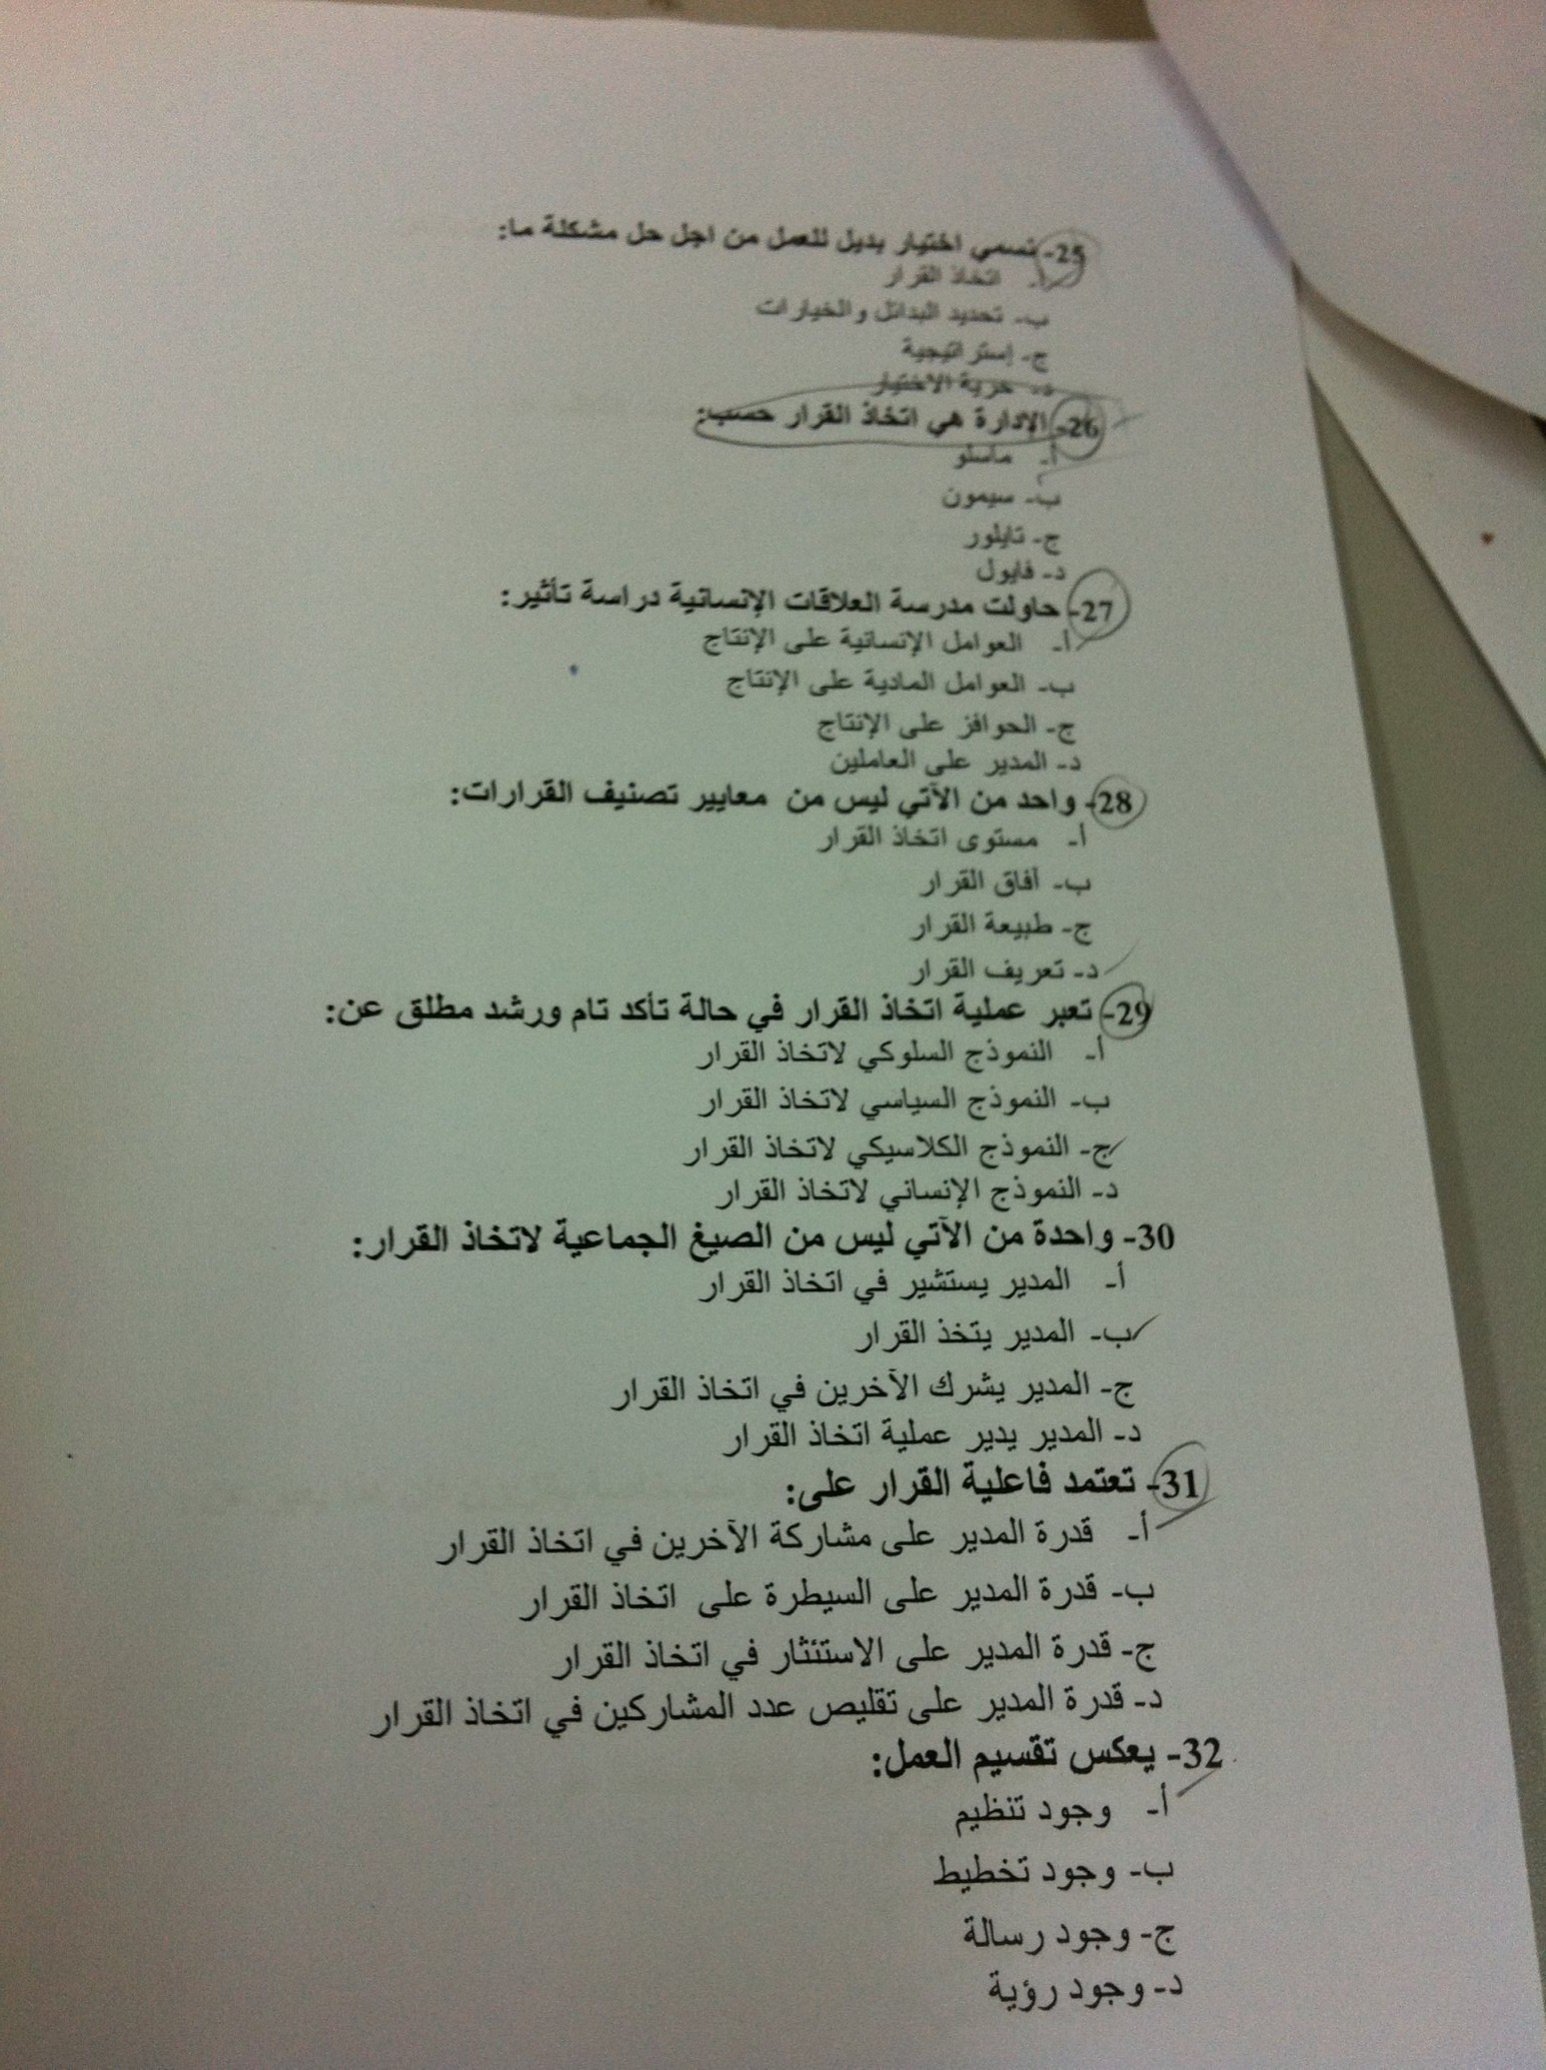 25- نسمي اختيار بديل للعمل من اجل حل مشكلة ما:
أ- اتخاذ القرار
ب- تحديد البدائل والخيارات
ج- إستراتيجية
د- حرية الاختيار
26- الإدارة هي اتخاذ القرار حسب:
أ- ماسلو
ب- سيمون
ج- تايلور
د- فايول
27- حاولت مدرسة العلاقات الإنسانية دراسة تأثير:
أ- العوامل الإنسانية على الإنتاج
ب- العوامل المادية على الإنتاج
ج- الحوافز على الإنتاج
د- المدير على العاملين
28- واحد من الآتي ليس من معايير تصنيف القرارات:
أ- مستوى اتخاذ القرار
ب- آفاق القرار
ج- طبيعة القرار
د- تعريف القرار
29- تعبر عملية اتخاذ القرار في حالة تأكد تام ورشد مطلق عن:
أ- النموذج السلوكي لاتخاذ القرار
ب- النموذج السياسي لاتخاذ القرار
ج- النموذج الكلاسيكي لاتخاذ القرار
د- النموذج الإنساني لاتخاذ القرار
30- واحدة من الآتي ليس من الصيغ الجماعية لاتخاذ القرار:
أ- المدير يستشير في اتخاذ القرار
ب- المدير يتخذ القرار
ج- المدير يشرك الآخرين في اتخاذ القرار
د- المدير يدير عملية اتخاذ القرار
31- تعتمد فاعلية القرار على:
أ- قدرة المدير على مشاركة الآخرين في اتخاذ القرار
ب- قدرة المدير على السيطرة على اتخاذ القرار
ج- قدرة المدير على الاستئثار في اتخاذ القرار
د- قدرة المدير على تقليص عدد المشاركين في اتخاذ القرار
32- يعكس تقسيم العمل:
أ- وجود تنظيم
ب- وجود تخطيط
ج- وجود رسالة
د- وجود رؤية